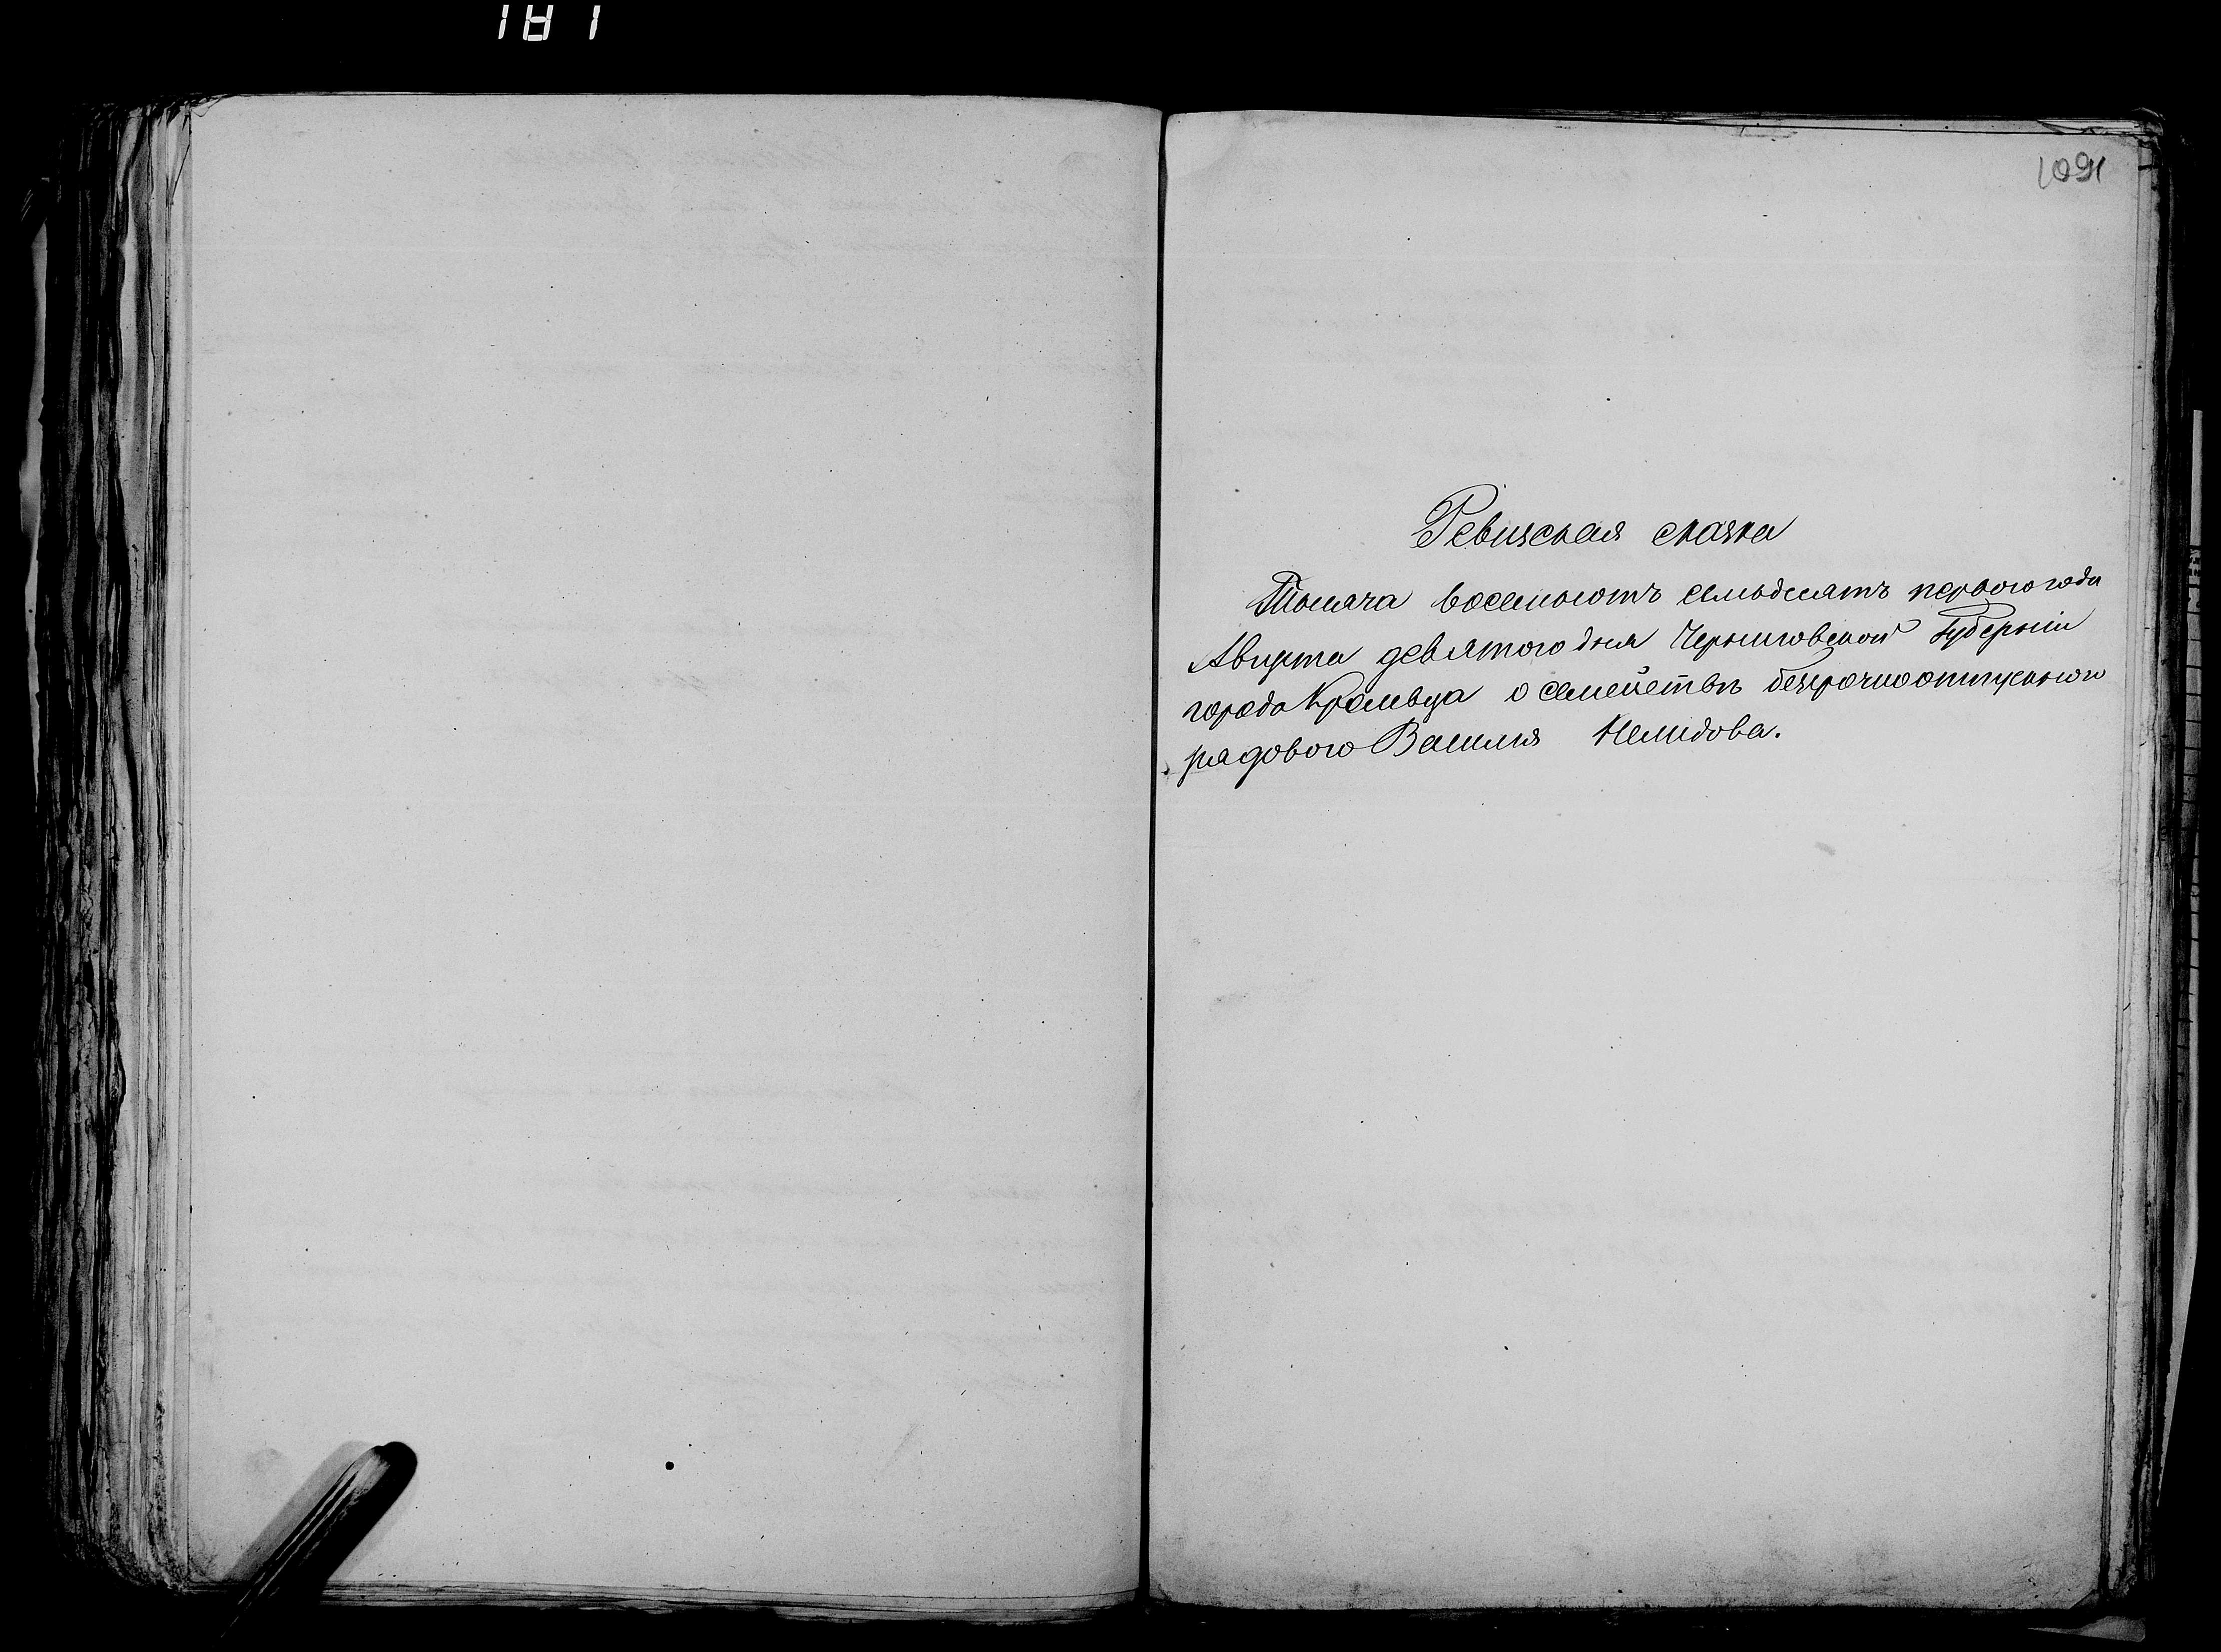 1091
Ревизская сказка
Тысяча восемьсотъ семьдесятъ перваго года
Августа девятого дня Черниговской Губерніи
города Кролевца о семействѣ безсрочноотпускного
рядового Василия Немидова.